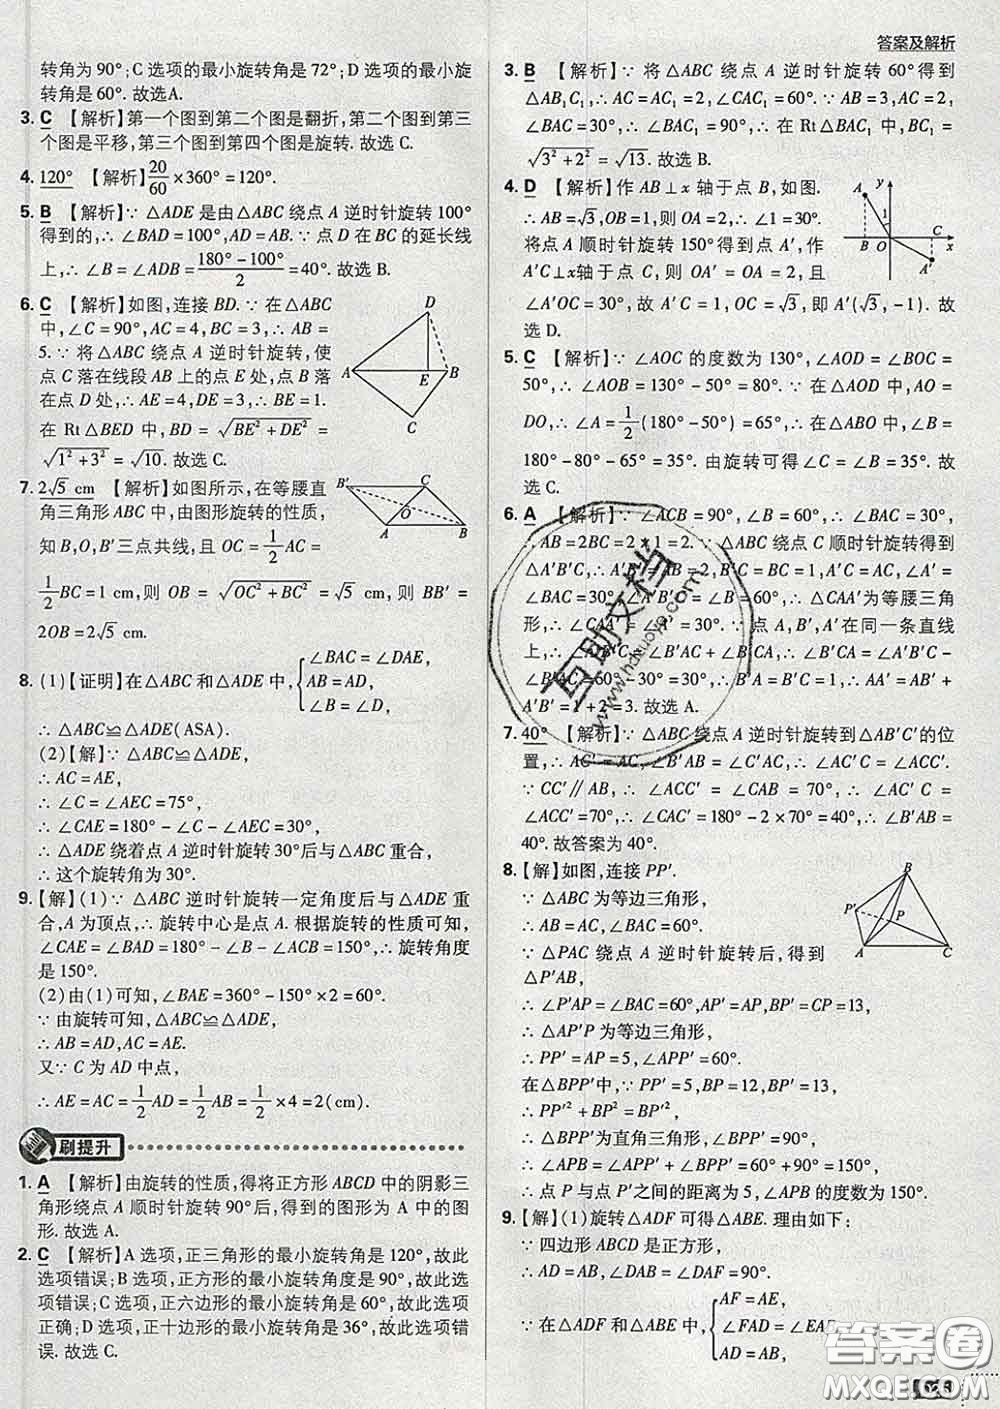 答案及解析
转角为90°;C选项的最小旋转角是72°;D选项的最小旋
转角是60°.故选A.
3. C 【解析】第一个图到第二个图是翻折,第二个图到第三
个图是平移,第三个图到第四个图是旋转.故选C.
4. 120° 【解析】20/60×360°=120°.
5. B 【解析】∵△ADE是由△ABC绕点A逆时针旋转100°
得到的,∴∠BAD=100°,AD=AB.∵点D在BC的延长线
上,∴∠B=∠ADB=(180°-100°)/2=40°.故选B.
6. C 【解析】如图,连接BD.∵在△ABC
中,∠C=90°,AC=4,BC=3,∴AB=
5.∵将△ABC绕点A逆时针旋转,使
点C落在线段AB上的点E处,点B落
在点D处,∴AE=4,DE=3,∴BE=1.
在Rt△BED中,BD=√(BE²+DE²)=
√(1²+3²)=√10.故选C.
D
A E B
C
7. 2√5 cm 【解析】如图所示,在等腰直
角三角形ABC中,由图形旋转的性质,
知B,O,B'三点共线,且OC=1/2AC=
1/2BC=1 cm,则OB=√(OC²+BC²)=√5 cm,则BB'=
2OB=2√5 cm.
B' C
O
A B
8. (1)【证明】在△ABC和△ADE中,{∠BAC=∠DAE,
AB=AD,
∠B=∠D,
∴△ABC≌△ADE(ASA).
(2)【解】∵△ABC≌△ADE,
∴AC=AE,
∴∠C=∠AEC=75°,
∴∠CAE=180°-∠C-∠AEC=30°,
∴△ADE绕着点A逆时针旋转30°后与△ABC重合,
∴这个旋转角为30°.
9.【解】(1)∵△ABC逆时针旋转一定角度后与△ADE重
合,A为顶点,∴旋转中心是点A.根据旋转的性质可知,
∠CAE=∠BAD=180°-∠B-∠ACB=150°,∴旋转角度
是150°.
(2)由(1)可知,∠BAE=360°-150°×2=60°.
∵由旋转可知,△ABC≌△ADE,
∴AB=AD,AC=AE.
又∵C为AD中点,
∴AE=AC=1/2AD=1/2AB=1/2×4=2(cm).
刷提升
1. A 【解析】由旋转的性质,得将正方形ABCD中的阴影三
角形绕点A顺时针旋转90°后,得到的图形为A中的图
形.故选A.
2. C 【解析】A选项,正三角形的最小旋转角是120°,故此
选项错误;B选项,正方形的最小旋转角度是90°,故此选
项错误;C选项,正六边形的最小旋转角是60°,故此选项
正确;D选项,正十边形的最小旋转角是36°,故此选项错
误.故选C.
3. B 【解析】∵将△ABC绕点A逆时针旋转60°得到
△AB₁C₁,∴AC=AC₁,∠CAC₁=60°.∵AB=3,AC=2,
∠BAC=30°,∴∠BAC₁=90°,∴在Rt△BAC₁中,BC₁=
√(3²+2²)=√13.故选B.
4. D 【解析】作AB⊥x轴于点B,如图.
∴AB=√3,OB=1,则OA=2,∴∠1=30°.
将点A顺时针旋转150°得到点A',作
A'C⊥x轴于点C,则OA'=OA=2,且
∠A'OC=30°,故A'C=1,OC=√3,即A'(√3,-1).故
选D.
A y
1
B O C x
A'
5. C 【解析】∵∠AOC的度数为130°,∠AOD=∠BOC=
50°,∴∠AOB=130°-50°=80°.∵在△AOD中,AO=
DO,∴∠A=1/2(180°-50°)=65°,∴在△AOB中,∠B=
180°-80°-65°=35°.由旋转可得∠C=∠B=35°.故
选C.
6. A 【解析】∵∠ACB=90°,∠B=60°,∴∠BAC=30°,
∴AB=2BC=2×1=2.∵△ABC绕点C顺时针旋转得到
△A'B'C,∴A'B'=AB=2,B'C=BC=1,A'C=AC,∠A'=
∠BAC=30°,∠A'B'C=∠B=60°,∴△CAA'为等腰三角
形,∴∠CAA'=∠A'=30°.∵点A,B',A'在同一条直线
上,∴∠A'B'C=∠B'AC+∠B'CA,∴∠B'CA=∠A'B'C-
∠B'AC=60°-30°=30°,∴B'A=B'C=1,∴AA'=AB'+
A'B'=1+2=3.故选A.
7. 40° 【解析】∵△ABC绕点A逆时针旋转到△AB'C'的位
置,∴AC'=AC,∠B'AB=∠C'AC,∴∠AC'C=∠ACC'.
∵CC'∥AB,∴∠ACC'=∠CAB=70°,∴∠AC'C=
∠ACC'=70°,∴∠CAC'=180°-2×70°=40°,∴∠B'AB=
40°.故答案为40°.
8.【解】如图,连接PP'.
∵△ABC为等边三角形,
∴∠BAC=60°.
∵△PAC绕点A逆时针旋转后,得到
△P'AB,
∴∠P'AP=∠BAC=60°,AP'=AP,BP'=CP=13,
∴△AP'P为等边三角形,
∴PP'=AP=5,∠APP'=60°.
在△BPP'中,∵PP'=5,BP=12,BP'=13,
∴PP'²+BP²=BP'²,
∴△BPP'为直角三角形,∠BPP'=90°,
∴∠APB=∠APP'+∠BPP'=60°+90°=150°,
∴点P与点P'之间的距离为5,∠APB的度数为150°.
B
P'
P
A C
9.【解】(1)旋转△ADF可得△ABE.理由如下:
∵四边形ABCD是正方形,
∴AD=AB,∠DAB=∠DAF=90°.
∵在△ADF和△ABE中,{AF=AE,
∠FAD=∠EAB
AD=AB
互助文档
www.hdxuoye.com
答案圈
MXQE.COM